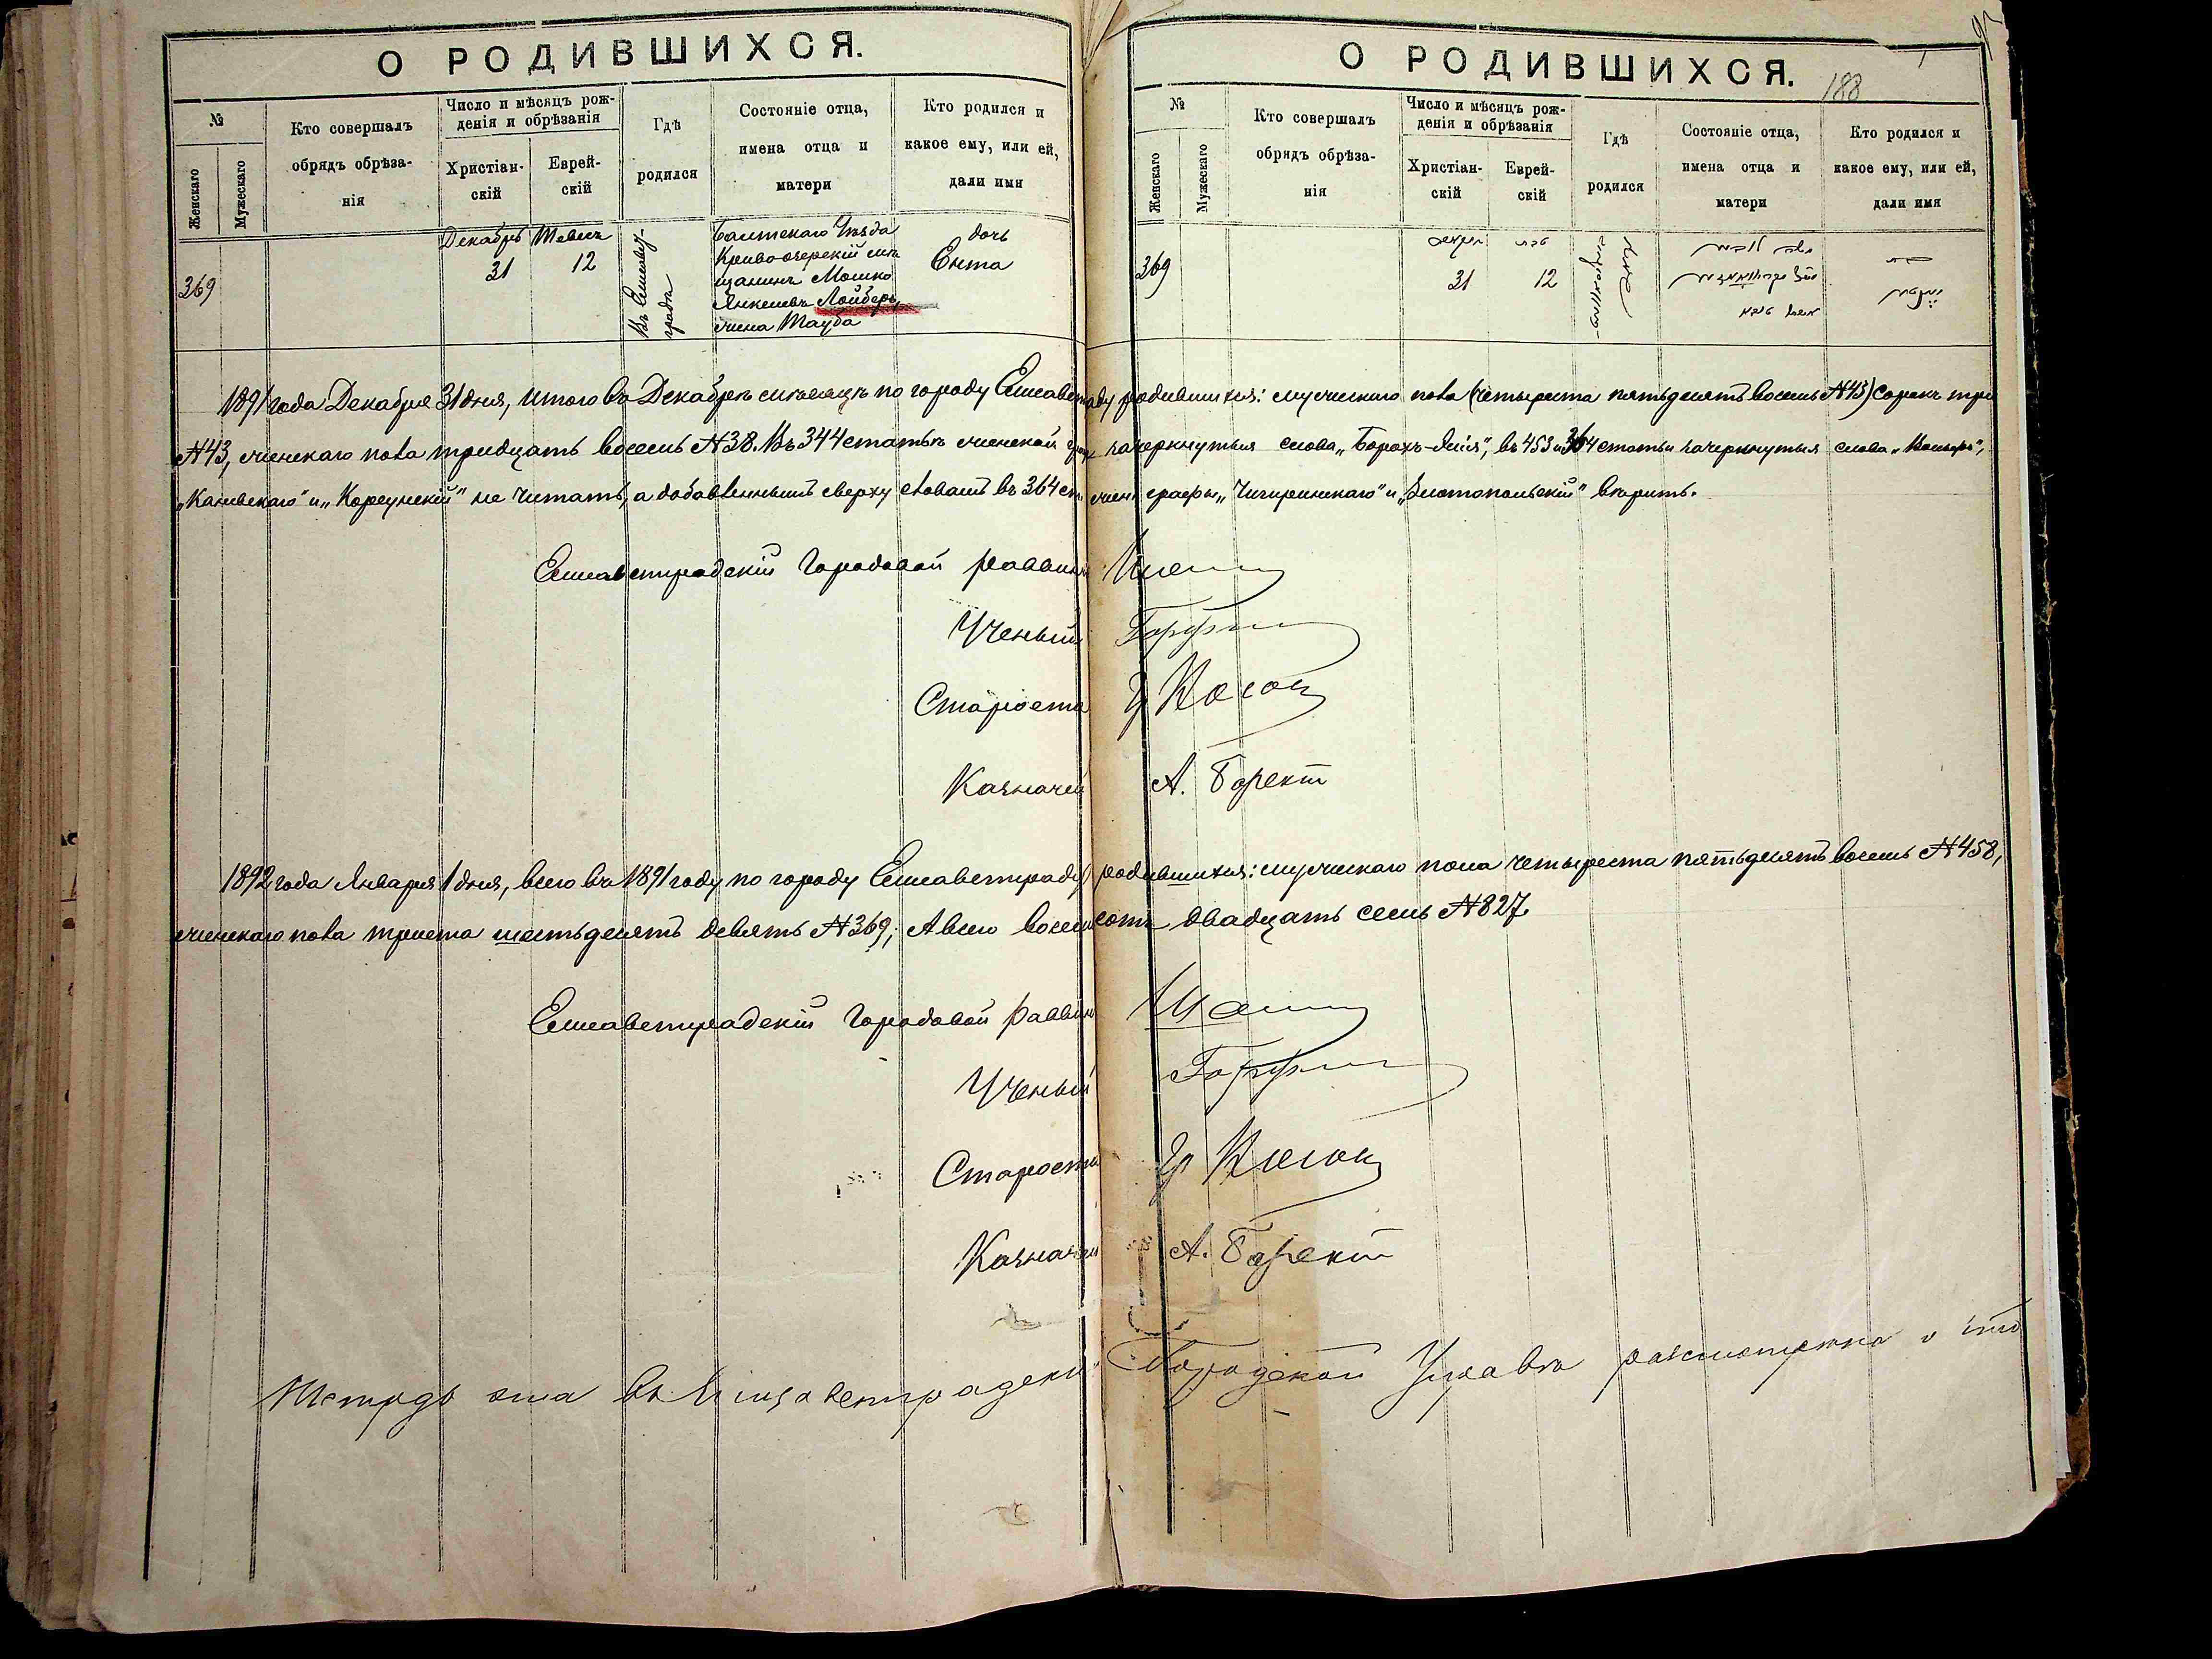 О РОДИВШИХСЯ.
№
Женскаго
Мужескаго
Кто совершалъ
обрядъ обрѣза-
нія
Число и мѣсяцъ рож-
денія и обрѣзанія
Христіан-
скій
Еврей-
скій
Гдѣ
родился
Состояніе отца,
имена отца и
матери
Кто родился и
какое ему, или ей,
дали имя
369
Декабрь
31
12
Въ Елисавет-
градѣ
Балтскаго Уѣзда
Кривоозерскій мѣ
щанинъ Мошко
Янкелевъ Лойберъ
жена Тауба
дочь
Ента
О РОДИВШИХСЯ.
188
№
Женскаго
Мужескаго
Кто совершалъ
обрядъ обрѣза-
нія
Число и мѣсяцъ рож-
денія и обрѣзанія
Христіан-
скій
Еврей-
скій
Гдѣ
родился
Состояніе отца,
имена отца и
матери
Кто родился и
какое ему, или ей,
дали имя
369
31
12
1891 года Декабря 31 дня, итого въ Декабрѣ мѣсяцѣ по городу Елисаветграду родившихся: мужескаго пола (четыреста пятьдесятъ восемь №43) сорокъ три
№43, женскаго пола тридцать восемь №38. Въ 344 статьѣ женской зачеркнутыя слова, въ 453 и 364 статьи зачеркнутыя слова
„Каневскаго" и „Корсунскій" не читать, а добавленнымъ сверху словамъ въ 364 ст. жен. графы „Чигиринскаго" и „Златопольскій" вѣрить.
Елисаветградскій Городовой раввинъ
Ученый
Староста
Казначей А.
1892 года Января 1 дня, всего въ 1891 году по городу Елисаветграду родившихся: мужескаго пола четыреста пятьдесятъ восемь №458,
женскаго пола триста шестьдесятъ девять №369; А всего восемьсотъ двадцать семь №827.
Елисаветградскій Городовой раввинъ
Ученый
Староста
Казначей А.
Тетрадь эта въ Елисаветградской Городской Управѣ разсмотрена и что